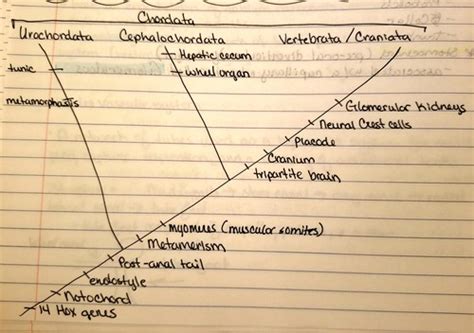 Chordata
Urochordata Cephalochordata Vertebrata / Craniata
Hepatic cecum
tunic wheel organ
metamorphasis
Glomerular Kidneys
Neural Crest cells
Placode
Cranium
tripartite brain
myomeres (muscular somites)
Metamerism
Post-anal tail
endostyle
Notochord
14 Hox genes